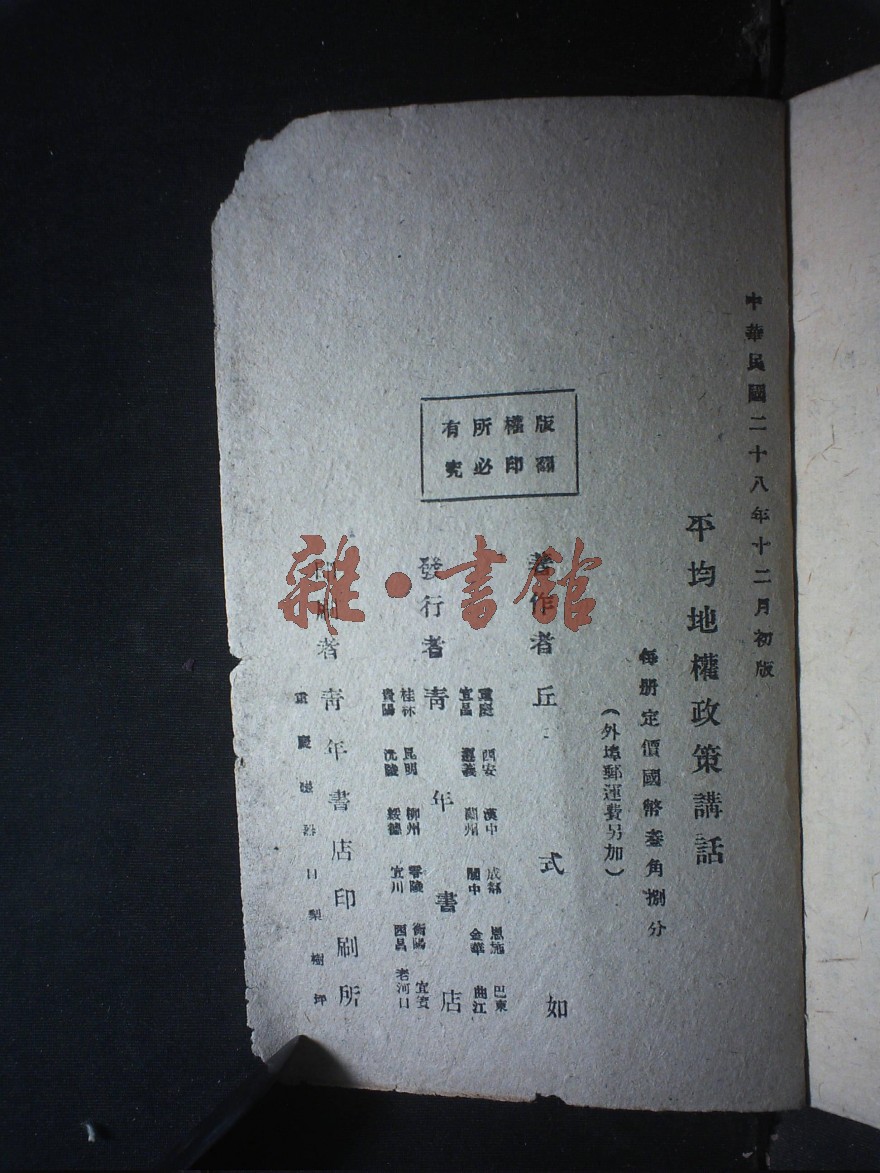 中華民國二十八年十二月初版
平均地權政策講話
每册定價國幣叁角捌分
（外埠郵運費另加）
版權所有
翻印必究
著作者 丘式如
發行者 青年書店
重慶 西安 漢中 成都 恩施 巴東
宜昌 嘉義 蘭州 閬中 金華 曲江
桂林 昆明 柳州 零陵 衡陽 宜賓
貴陽 沅陵 綏德 宜川 西昌 老河口
印刷者 青年書店印刷所
重慶磁器口梨樹坪
雜·書館